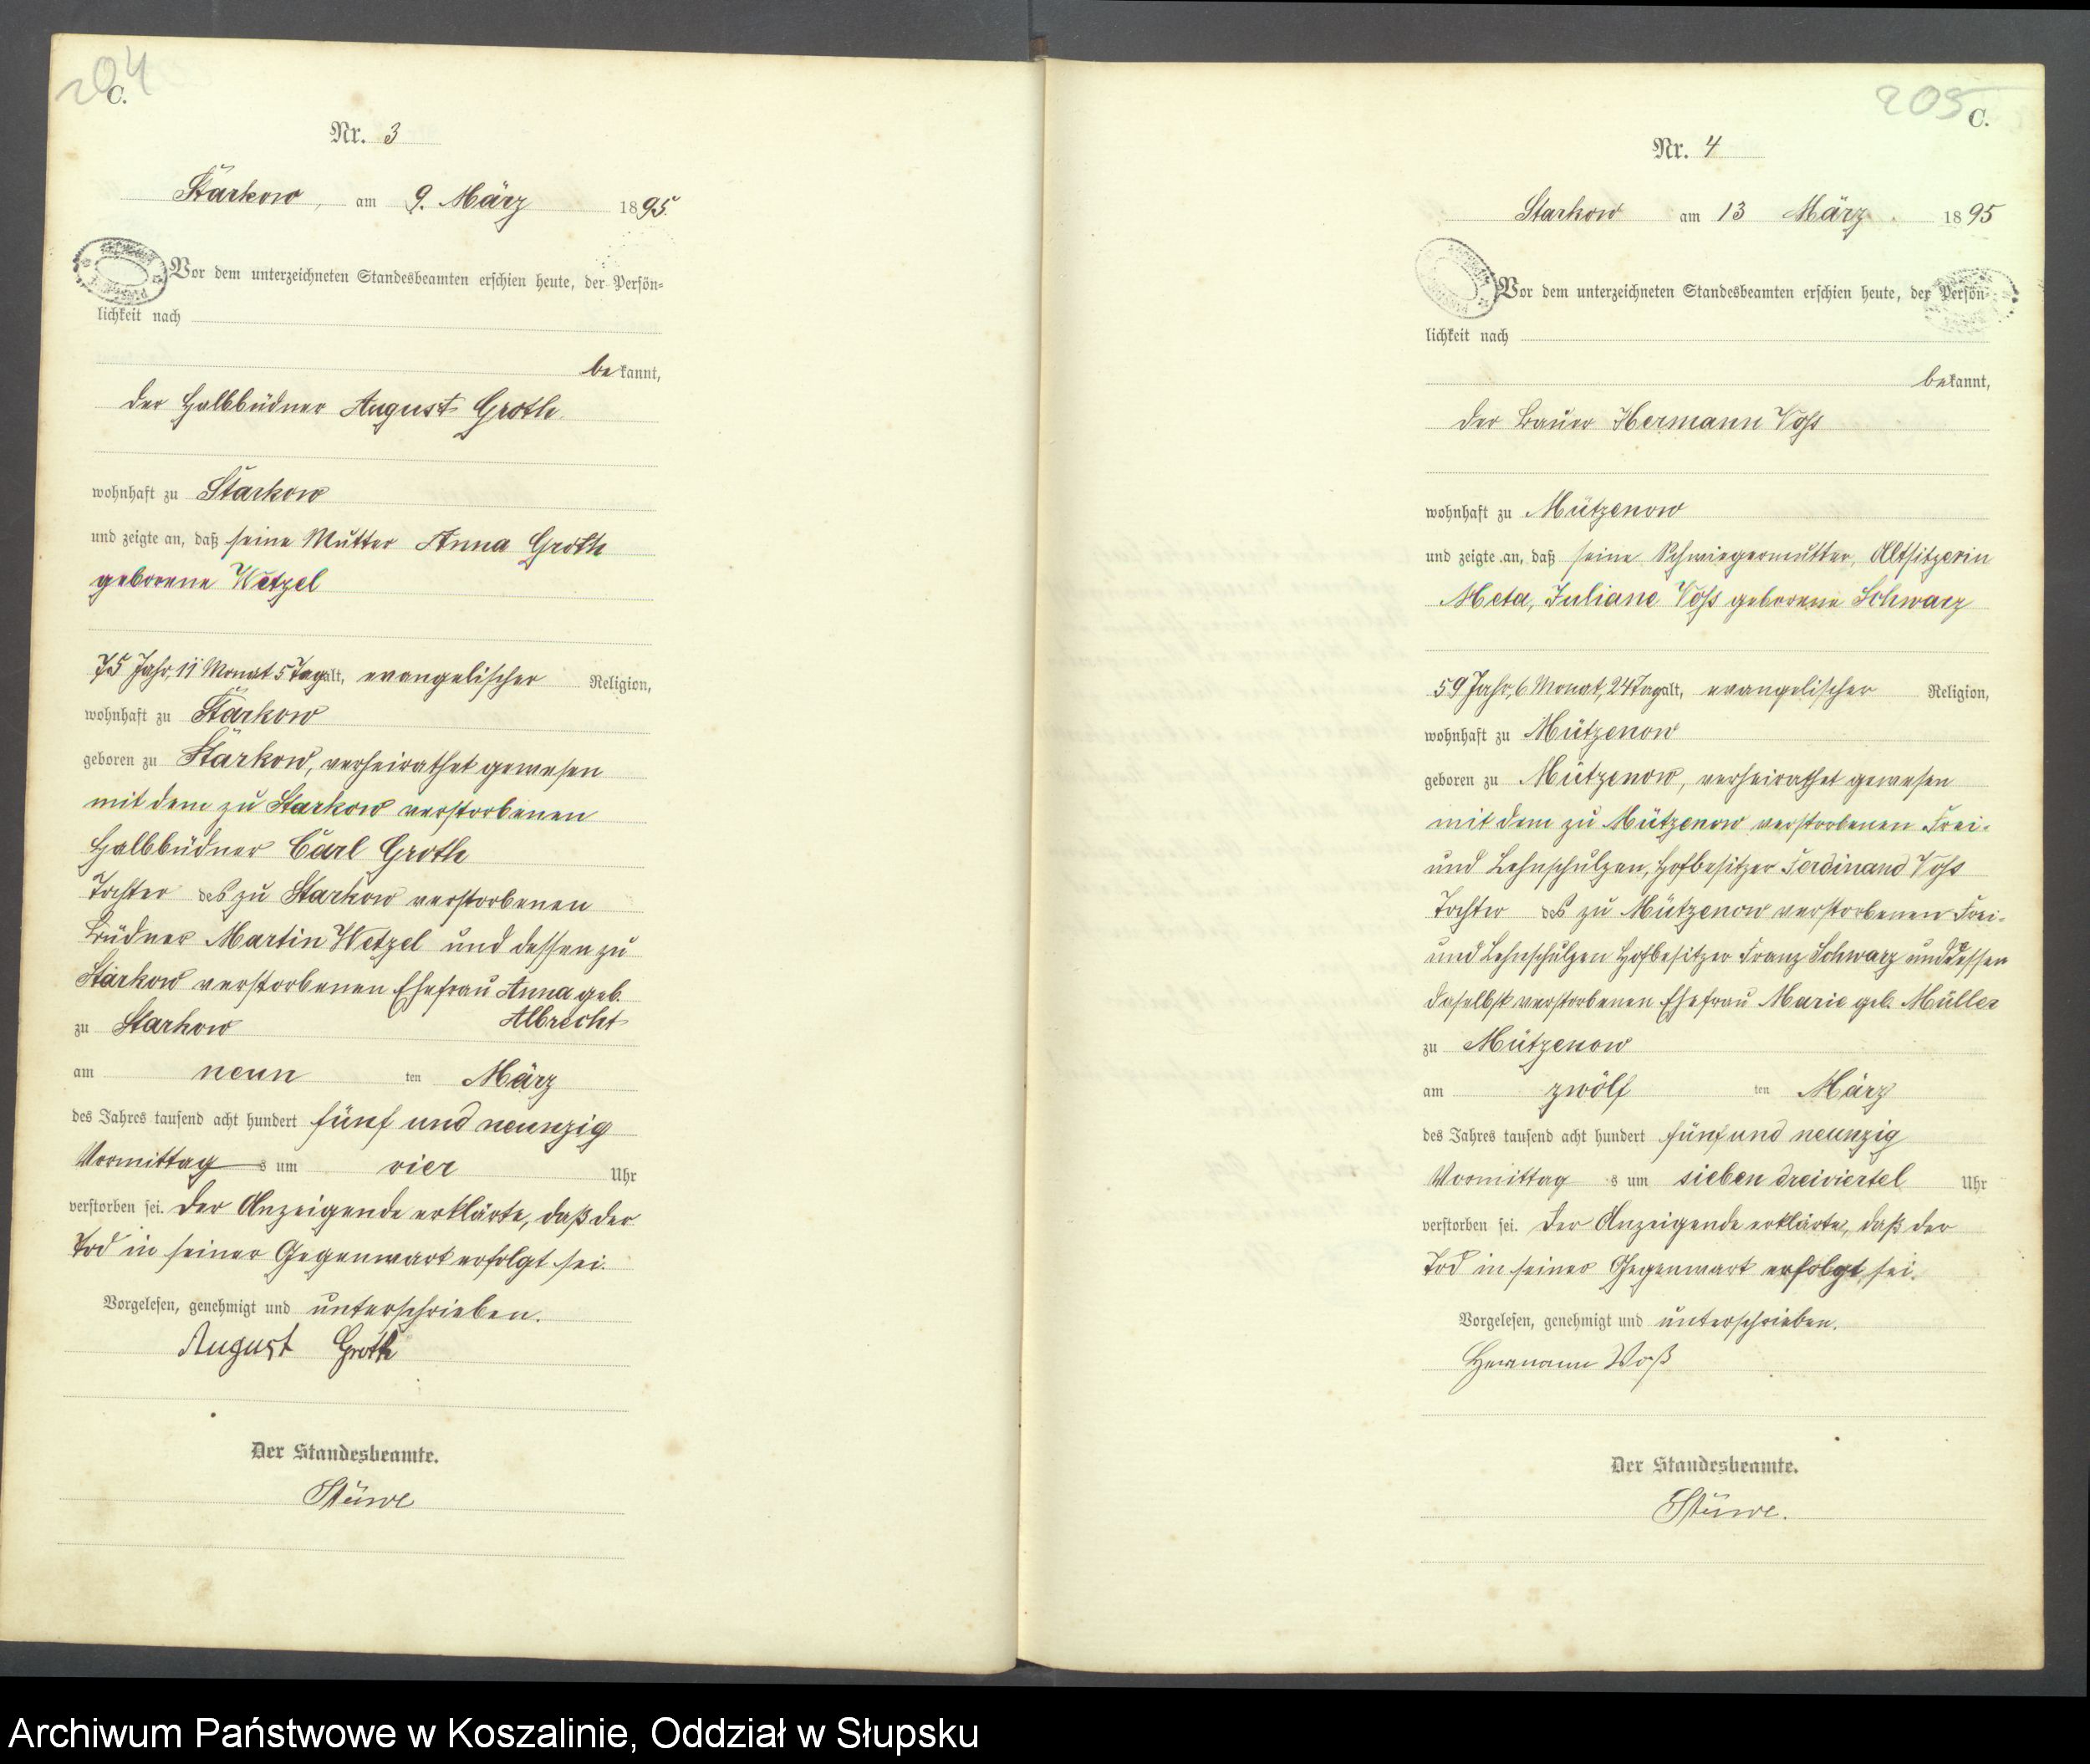 204
C.
Nr. 3
Starkow, am 9. März 1895.
Vor dem unterzeichneten Standesbeamten erschien heute, der Persön-
lichkeit nach
bekannt,
der Halbbüdner August Groth
wohnhaft zu Starkow
und zeigte an, daß seine Mutter Anna Groth
geborene Wetzel
75 Jahr, 11 Monat 5 Tag alt, evangelischer Religion,
wohnhaft zu Starkow
geboren zu Starkow, verheirathet gewesen
mit dem zu Starkow verstorbenen
Halbbüdner Carl Groth
Tochter des zu Starkow verstorbenen
Büdner Martin Wetzel und dessen zu
Starkow verstorbenen Ehefrau Anna geb.
Albrecht
zu Starkow
am neun ten März
des Jahres tausend acht hundert fünf und neunzig
Vormittags um vier Uhr
verstorben sei. Der Anzeigende erklärte, daß der
Tod in seiner Gegenwart erfolgt sei.
Vorgelesen, genehmigt und unterschrieben.
August Groth
Der Standesbeamte.
Stüwe
205
C.
Nr. 4
Starkow am 13 März 1895
Vor dem unterzeichneten Standesbeamten erschien heute, der Persön-
lichkeit nach
bekannt,
der Bauer Hermann Voss
wohnhaft zu Mützenow
und zeigte an, daß seine Schwiegermutter, Altsitzerin
Meta, Juliane Voss geborene Schwarz
59 Jahr, 6 Monat, 24 Tag alt, evangelischer Religion,
wohnhaft zu Mützenow
geboren zu Mützenow, verheirathet gewesen
mit dem zu Mützenow verstorbenen Frei-
und Lehnschulzen, Hofbesitzer Ferdinand Voss
Tochter des zu Mützenow verstorbenen Frei-
und Lehnschulzen Hofbesitzer Franz Schwarz und dessen
daselbst verstorbenen Ehefrau Marie geb. Müller
zu Mützenow
am zwölf ten März
des Jahres tausend acht hundert fünf und neunzig
Vormittags um sieben dreiviertel Uhr
verstorben sei. Der Anzeigende erklärte, daß der
Tod in seiner Gegenwart erfolgt sei.
Vorgelesen, genehmigt und unterschrieben.
Hermann Voß
Der Standesbeamte.
Stüwe.
Archiwum Państwowe w Koszalinie, Oddział w Słupsku